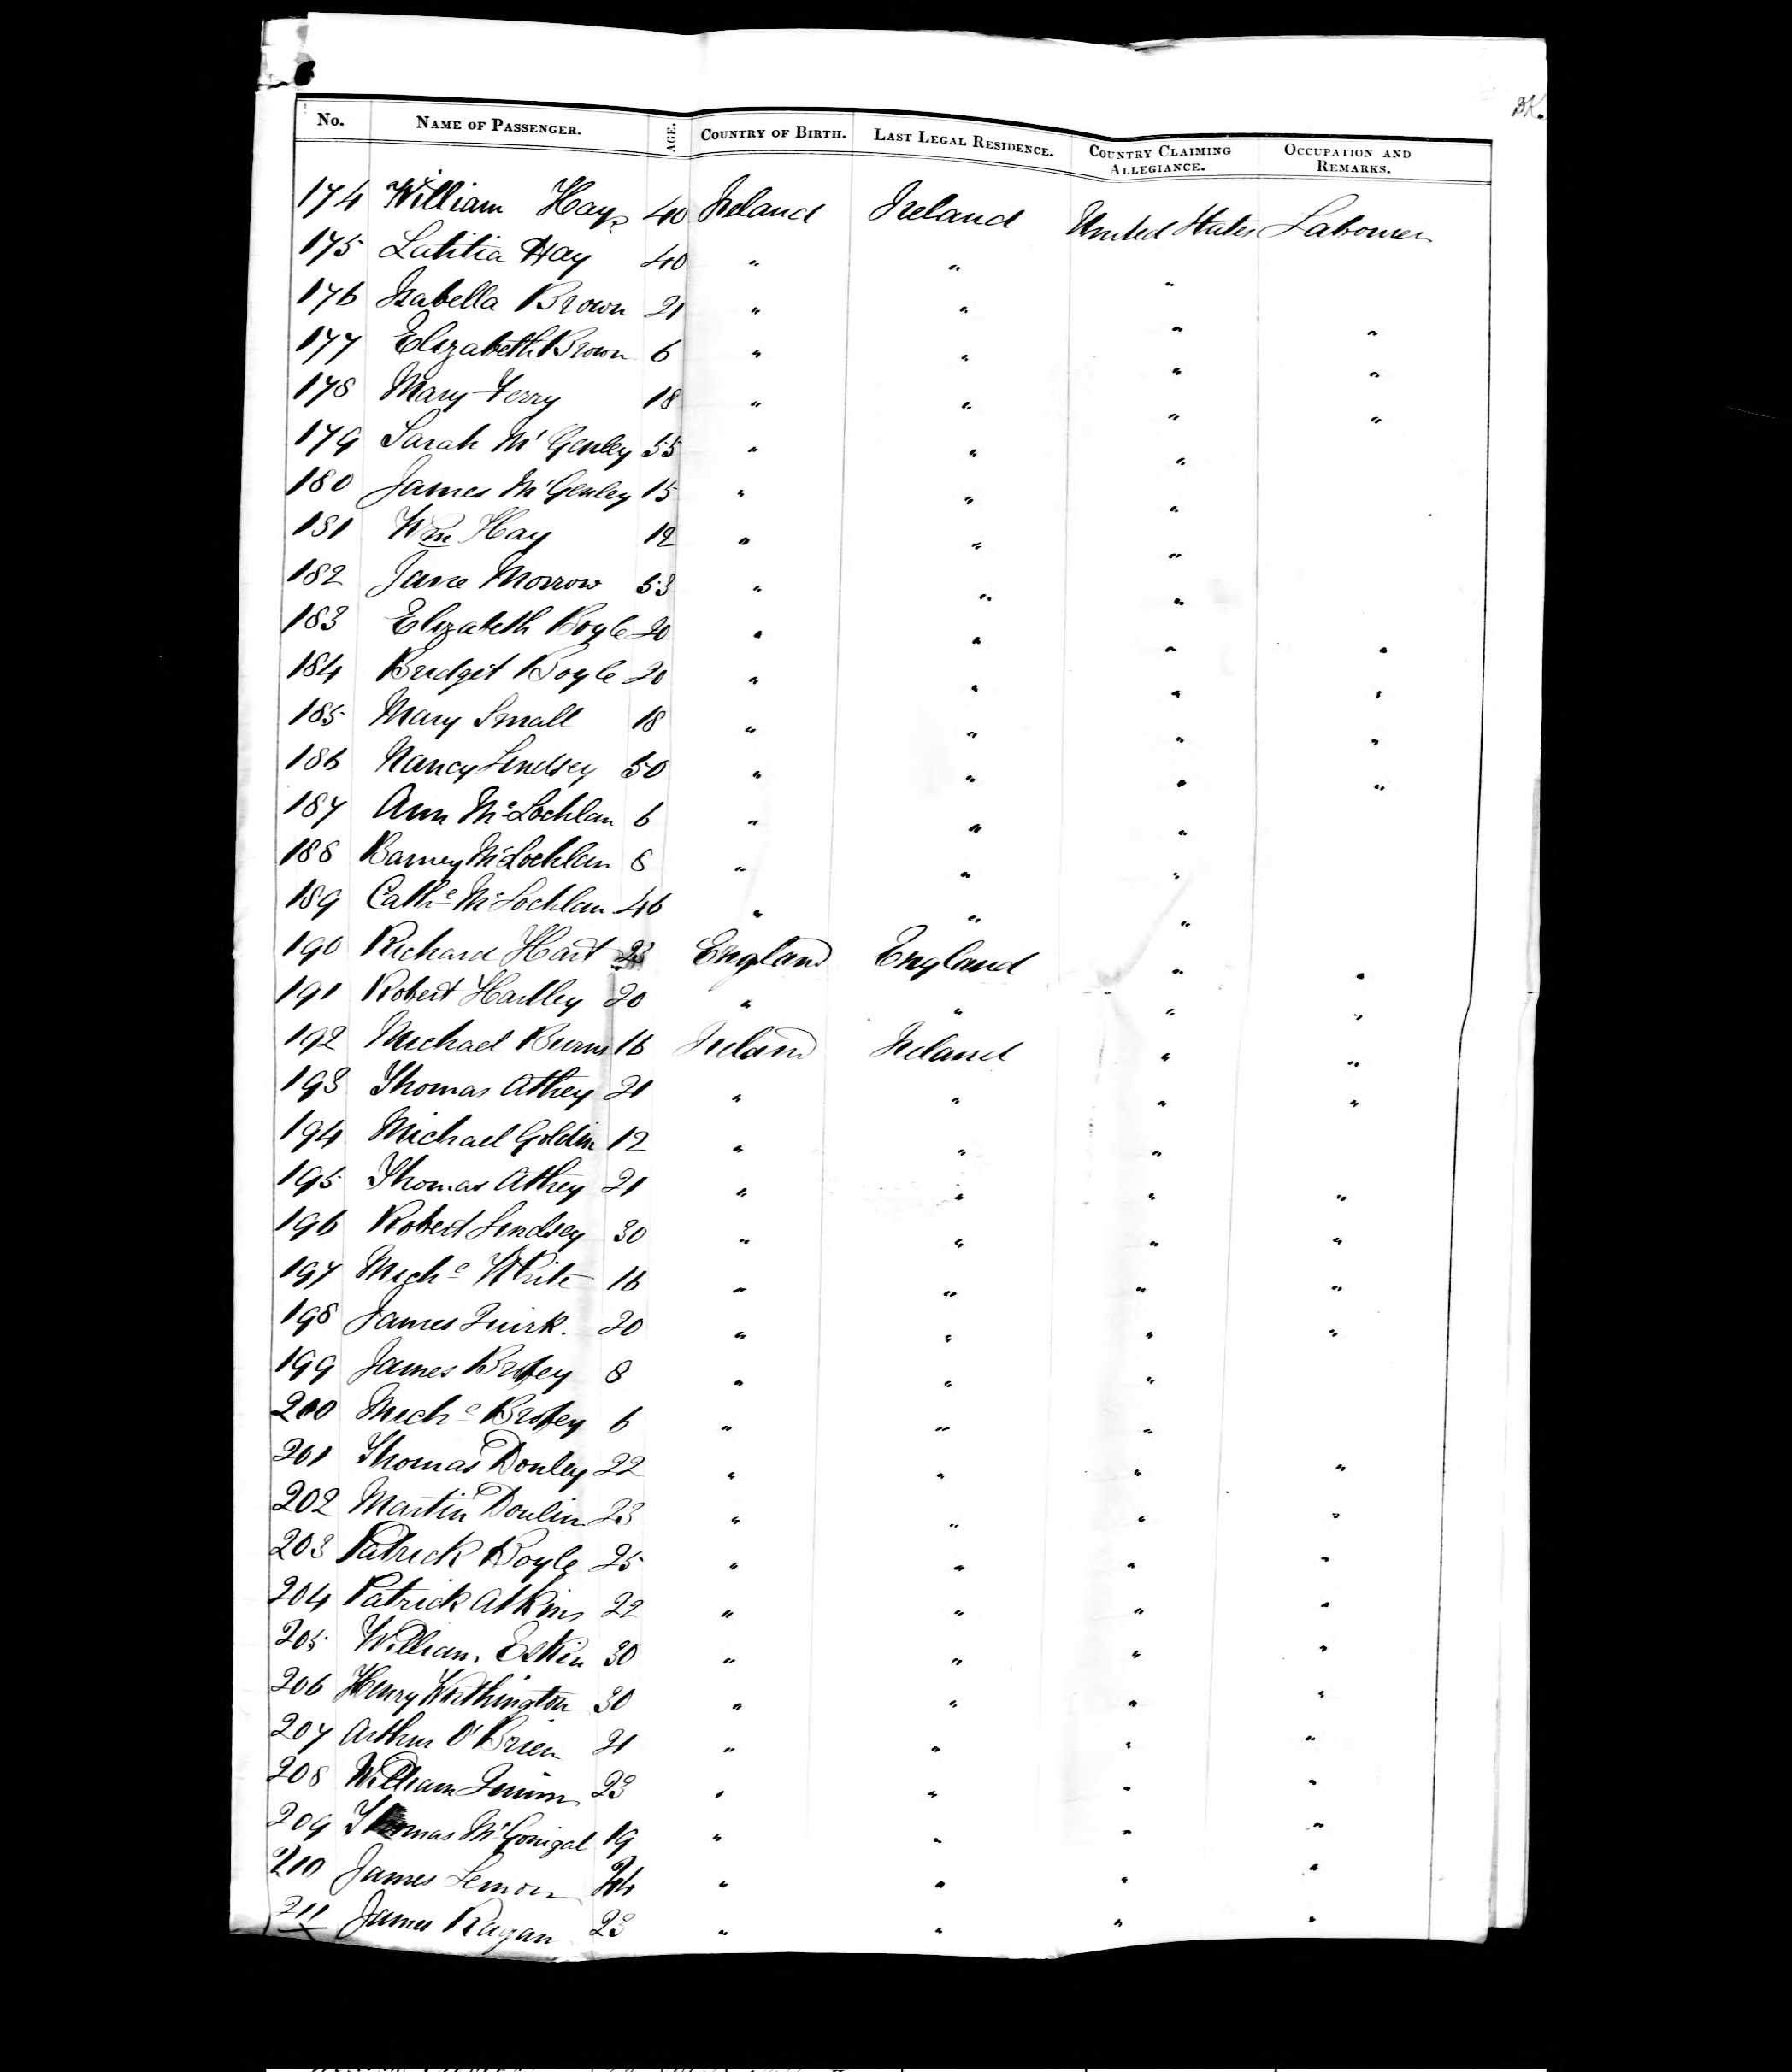 DK.
No. NAME OF PASSENGER. AGE. COUNTRY OF BIRTH. LAST LEGAL RESIDENCE. COUNTRY CLAIMING ALLEGIANCE. OCCUPATION AND REMARKS.
174 William Hay 40 Ireland Ireland United States Labourer
175 Latitia Hay 40 " " "
176 Isabella Brown 21 " " " "
177 Elizabeth Brown 6 " " " "
178 Mary Ferry 18 " " " "
179 Sarah M'Genley 55 " " "
180 James M'Genley 15 " " "
181 Wm Hay 12 " " "
182 Jane Morrow 53 " " "
183 Elizabeth Boyle 20 " " " "
184 Bridget Boyle 20 " " " "
185 Mary Small 18 " " " "
186 Nancy Lindsey 50 " " " "
187 Ann McLochlan 6 " " "
188 Barney McLochlan 8 " " "
189 Cathe McLochlan 46 " " "
190 Richard Hart 23 England England " "
191 Robert Hartley 20 " " " "
192 Michael Burns 16 Ireland Ireland " "
193 Thomas Athey 21 " " " "
194 Michael Goldin 12 " " "
195 Thomas Athey 21 " " " "
196 Robert Lindsey 30 " " " "
197 Miche White 16 " " " "
198 James Quirk. 20 " " " "
199 James Brofey 8 " " "
200 Miche Brofey 6 " " "
201 Thomas Donley 22 " " " "
202 Martin Doulin 23 " " " "
203 Patrick Boyle 25 " " " "
204 Patrick Atkins 22 " " " "
205 William Eskin 30 " " " "
206 Henry Worthington 30 " " " "
207 Arthur O'Brien 21 " " " "
208 William Quinn 23 " " " "
209 Thomas M'Gonigal 19 " " " "
210 James Lemon 24 " " " "
211 James Ragan 23 " " " "